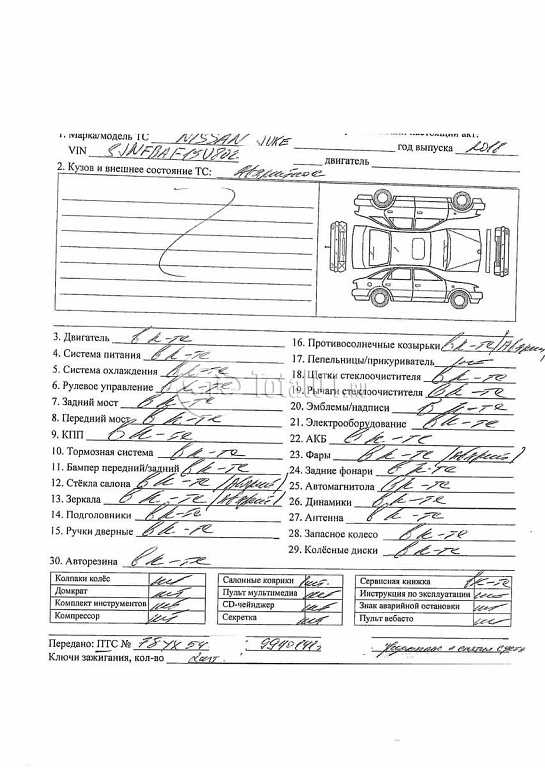 1. Марка/модель ТС NISSAN JUKE настоящий акт:
VIN SJNFBAF15U802 год выпуска 2018
двигатель
2. Кузов и внешнее состояние ТС: Аварийное
3. Двигатель в к-те
4. Система питания в к-те
5. Система охлаждения в к-те
6. Рулевое управление в к-те
7. Задний мост в к-те
8. Передний мост в к-те
9. КПП в к-те
10. Тормозная система в к-те
11. Бампер передний/задний в к-те
12. Стёкла салона в к-те
13. Зеркала в к-те
14. Подголовники в к-те
15. Ручки дверные в к-те
16. Противосолнечные козырьки в к-те
17. Пепельницы/прикуриватель
18. Щетки стеклоочистителя в к-те
19. Рычаги стеклоочистителя в к-те
20. Эмблемы/надписи в к-те
21. Электрооборудование в к-те
22. АКБ в к-те
23. Фары в к-те
24. Задние фонари в к-те
25. Автомагнитола в к-те
26. Динамики в к-те
27. Антенна в к-те
28. Запасное колесо в к-те
29. Колёсные диски в к-те
30. Авторезина в к-те
Колпаки колёс нет
Домкрат нет
Комплект инструментов нет
Компрессор нет
Салонные коврики нет
Пульт мультимедиа нет
CD-чейнджер нет
Секретка нет
Сервисная книжка в к-те
Инструкция по эксплуатации нет
Знак аварийной остановки нет
Пульт вебасто нет
Передано: ПТС № 78 УХ 54
Ключи зажигания, кол-во 2шт